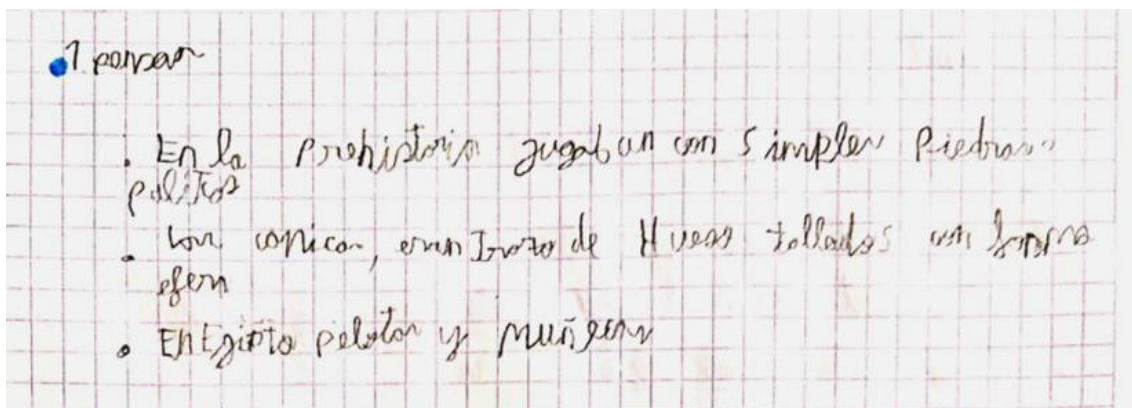 1 pensar
. En la Prehistoria jugaban con simples Piedras o
palitos
. Las canicas, eran trozo de Hueso tallados con forma
esfera
. En Egipto pelotas y muñecas